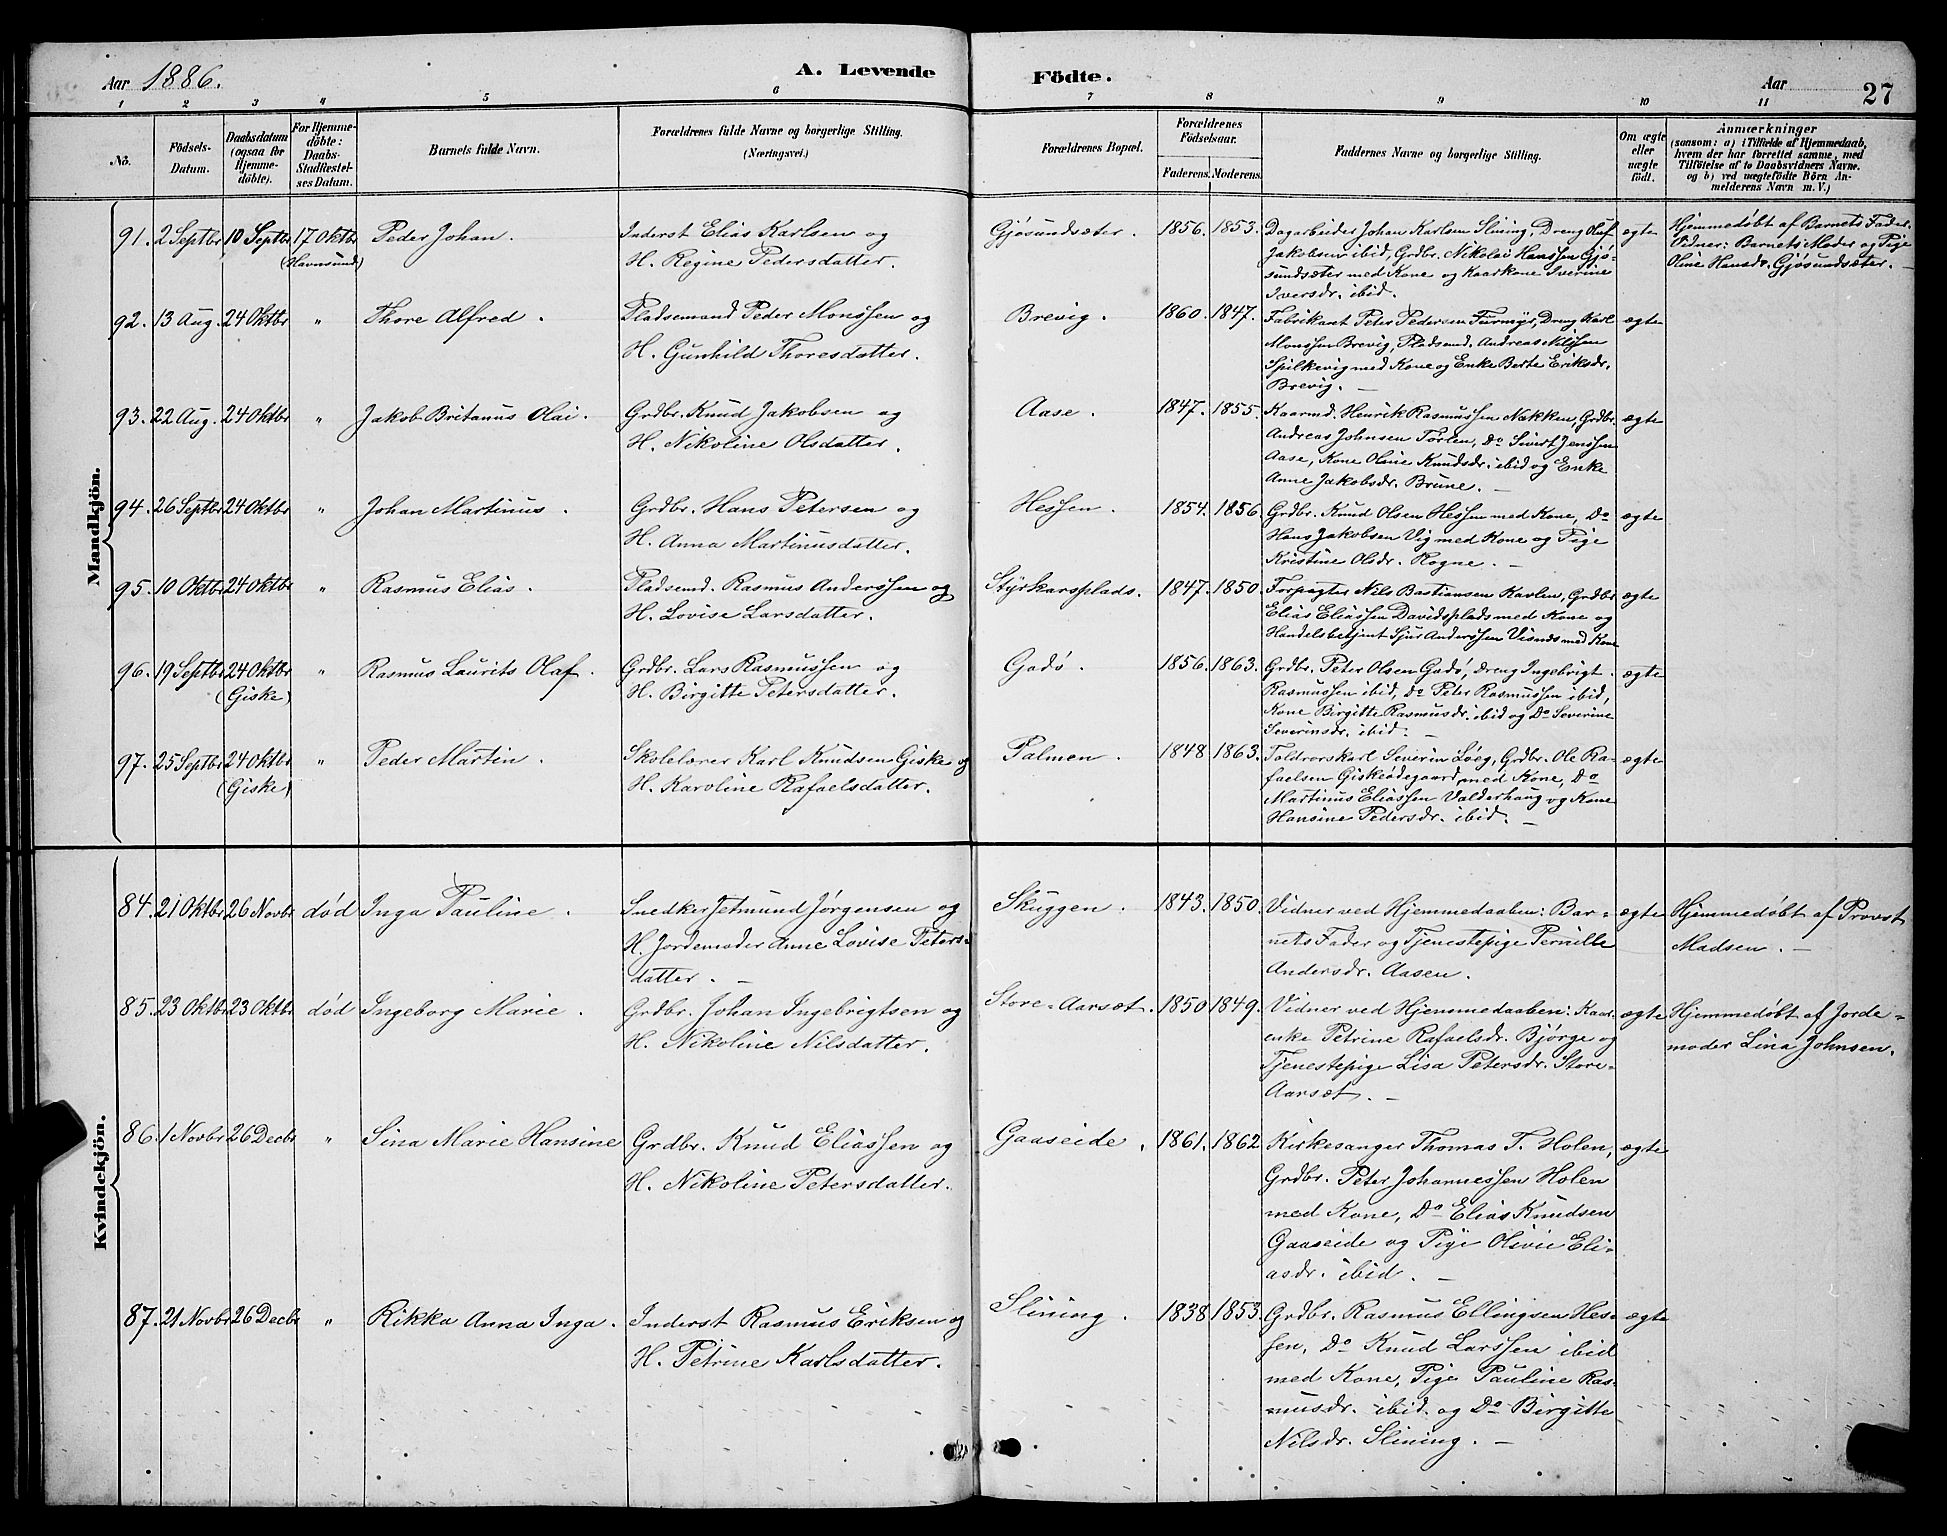 Aar 1886. A. Levende Födte. Aar 27
1 2 3 4 5 6 7 8 9 10 11
No.
Födsels-
Datum.
Daabsdatum
(ogsaa for
Hjemme-
döbte).
For Hjemme-
döbte:
Daabs-
Stadfæstel-
ses Datum.
Barnets fulde Navn.
Forældrenes fulde Navne og borgerlige Stilling.
(Næringsvei.)
Forældrenes Bopæl.
Forældrenes
Födselsaar.
Faderens. Moderens.
Faddernes Navne og borgerlige Stilling.
Om ægte
eller
uægte
födt.
Anmærkninger
(saasom: a) i Tilfælde af Hjemmedaab,
hvem der har forrettet samme, med
Tilföielse af to Daabsvidners Navne.
og b) ved uægtefödte Börn An-
melderens Navn m. V.)
Mandkjön.
91. 2 Septbr 10 Septbr 17 Oktbr
(Havnsund)
Peder Johan.
Inderst Elias Karlsen og
H. Regine Pedersdatter.
Gjøsundsæter. 1856. 1853.
Dagarbeider Johan Karlsen Slining, Dreng Oluf
Jakobsen ibid, Grdbr. Nikolai Hanssen Gjø-
sundsæter med Kone og Kaarkone Iverine
Iversdr. ibid.
ægte
Hjemmedøbt af Barnets Fader.
Vidner: Barnets Moder og Pige
Oline Hansdr. Gjøsundsæter. —
92. 13 Aug. 24 Oktbr "
Thore Alfred.
Pladsemand Peder Monssen og
H. Gunhild Thoresdatter.
Brevig. 1860. 1847.
Fabrikant Peter Pedersen Furmyr, Dreng Karl
Monssen Brevig, Pladsmd. Andreas Nilssen
Spilkevig med Kone og Enke Berte Eriksdr.
Brevig. —
ægte
93. 22 Aug. 24 Oktbr "
Jakob Britanus Olai.
Grdbr. Knud Jakobsen og
H. Nikoline Olsdatter.
Aase. 1847. 1855.
Kaarmd. Henrik Rasmussen Nakken, Grdbr.
Andreas Johnsen Torlen, Do Sivert Jenssen
Aase, Kone Oline Knudsdr. ibid og Enke
Anne Jakobsdr. Brune. —
ægte
94. 26 Septbr 24 Oktbr "
Johan Martinus.
Grdbr. Hans Petersen og
H. Anna Martinusdatter.
Hessen. 1854. 1856.
Grdbr. Knud Olsen Hessen med Kone, Do
Hans Jakobsen Vig med Kone og Pige
Kristine Olsdr. Rogne. —
ægte
95. 10 Oktbr 24 Oktbr "
Rasmus Elias.
Pladsemd. Rasmus Anderssen og
H. Lovise Larsdatter.
Styrkarsplads. 1847. 1850.
Forpagter Nils Bastiansen Kavlen, Grdbr
Elias Eliassen Davidsplads med Kone og
Handelsbetjent Sjur Anderssen Visnes med Kone
ægte
96. 19 Septbr 24 Oktbr "
(Giske)
Rasmus Laurits Olaf.
Grdbr. Lars Rasmussen og
H. Birgitte Petersdatter.
Godø. 1856. 1863.
Grdbr. Peter Olsen Godø, Dreng Ingebrigt
Rasmussen ibid, Do Peter Rasmussen ibid,
Kone Birgitte Rasmusdr. ibid og Do Severine
Severinsdr. ibid. —
ægte
97. 25 Septbr 24 Oktbr "
(Giske)
Peder Martin.
Skolelærer Karl Knudsen Giske og
H. Karoline Rafaelsdatter.
Palmen. 1848 1863.
Toldrorskarl Severin Løeg, Grdbr. Ole Ra-
faelsen Giskeødegaard med Kone, Do
Martinus Eliassen Valderhaug og Kone
Hansine Pedersdr. ibid. —
ægte
Kvindekjön.
84. 21 Oktbr 26 Novbr død
Inga Pauline.
Snedker Jetmund Jørgensen og
H. Jordemoder Anne Lovise Peters-
datter. —
Skuggen. 1843. 1850.
Vidner ved Hjemmedaaben: Bar-
nets Fader og Tjenestepige Pernille
Andersdr. Aasen.
ægte
Hjemmedøbt af Provst
Madsen. —
85. 23 Oktbr 23 Oktbr død
Ingeborg Marie.
Grdbr. Johan Ingebrigtsen og
H. Nikoline Nilsdatter.
Store-Aarsæt. 1850 1849.
Vidner ved Hjemmedaaben: Kaar-
enke Petrine Rafaelsdr. Bjørge og
Tjenestepige Lisa Petersdr. Store-
Aarsæt. —
ægte
Hjemmedøbt af Jorde-
moder Lina Johnsen.
86. 1 Novbr 26 Decbr "
Sina Marie Hansine
Grdbr. Knud Eliassen og
H. Nikoline Petersdatter.
Gaaseide. 1861. 1862
Kirkesanger Thomas T. Holen,
Grdbr. Peter Johannessen Holen
med Kone, Do Elias Knudsen
Gaaseide og Pige Olivie Eli-
asdr. ibid. —
ægte
87. 21 Novbr 26 Decbr "
Rikka Anna Inga.
Inderst Rasmus Eriksen og
H. Petrine Karlsdatter.
Slining. 1838 1853.
Grdbr. Rasmus Ellingsen Hes-
sen, Do Knud Larssen ibid
med Kone, Pige Pauline Ras-
musdr. ibid. og Do Birgitte
Nilsdr. Slining. —
ægte